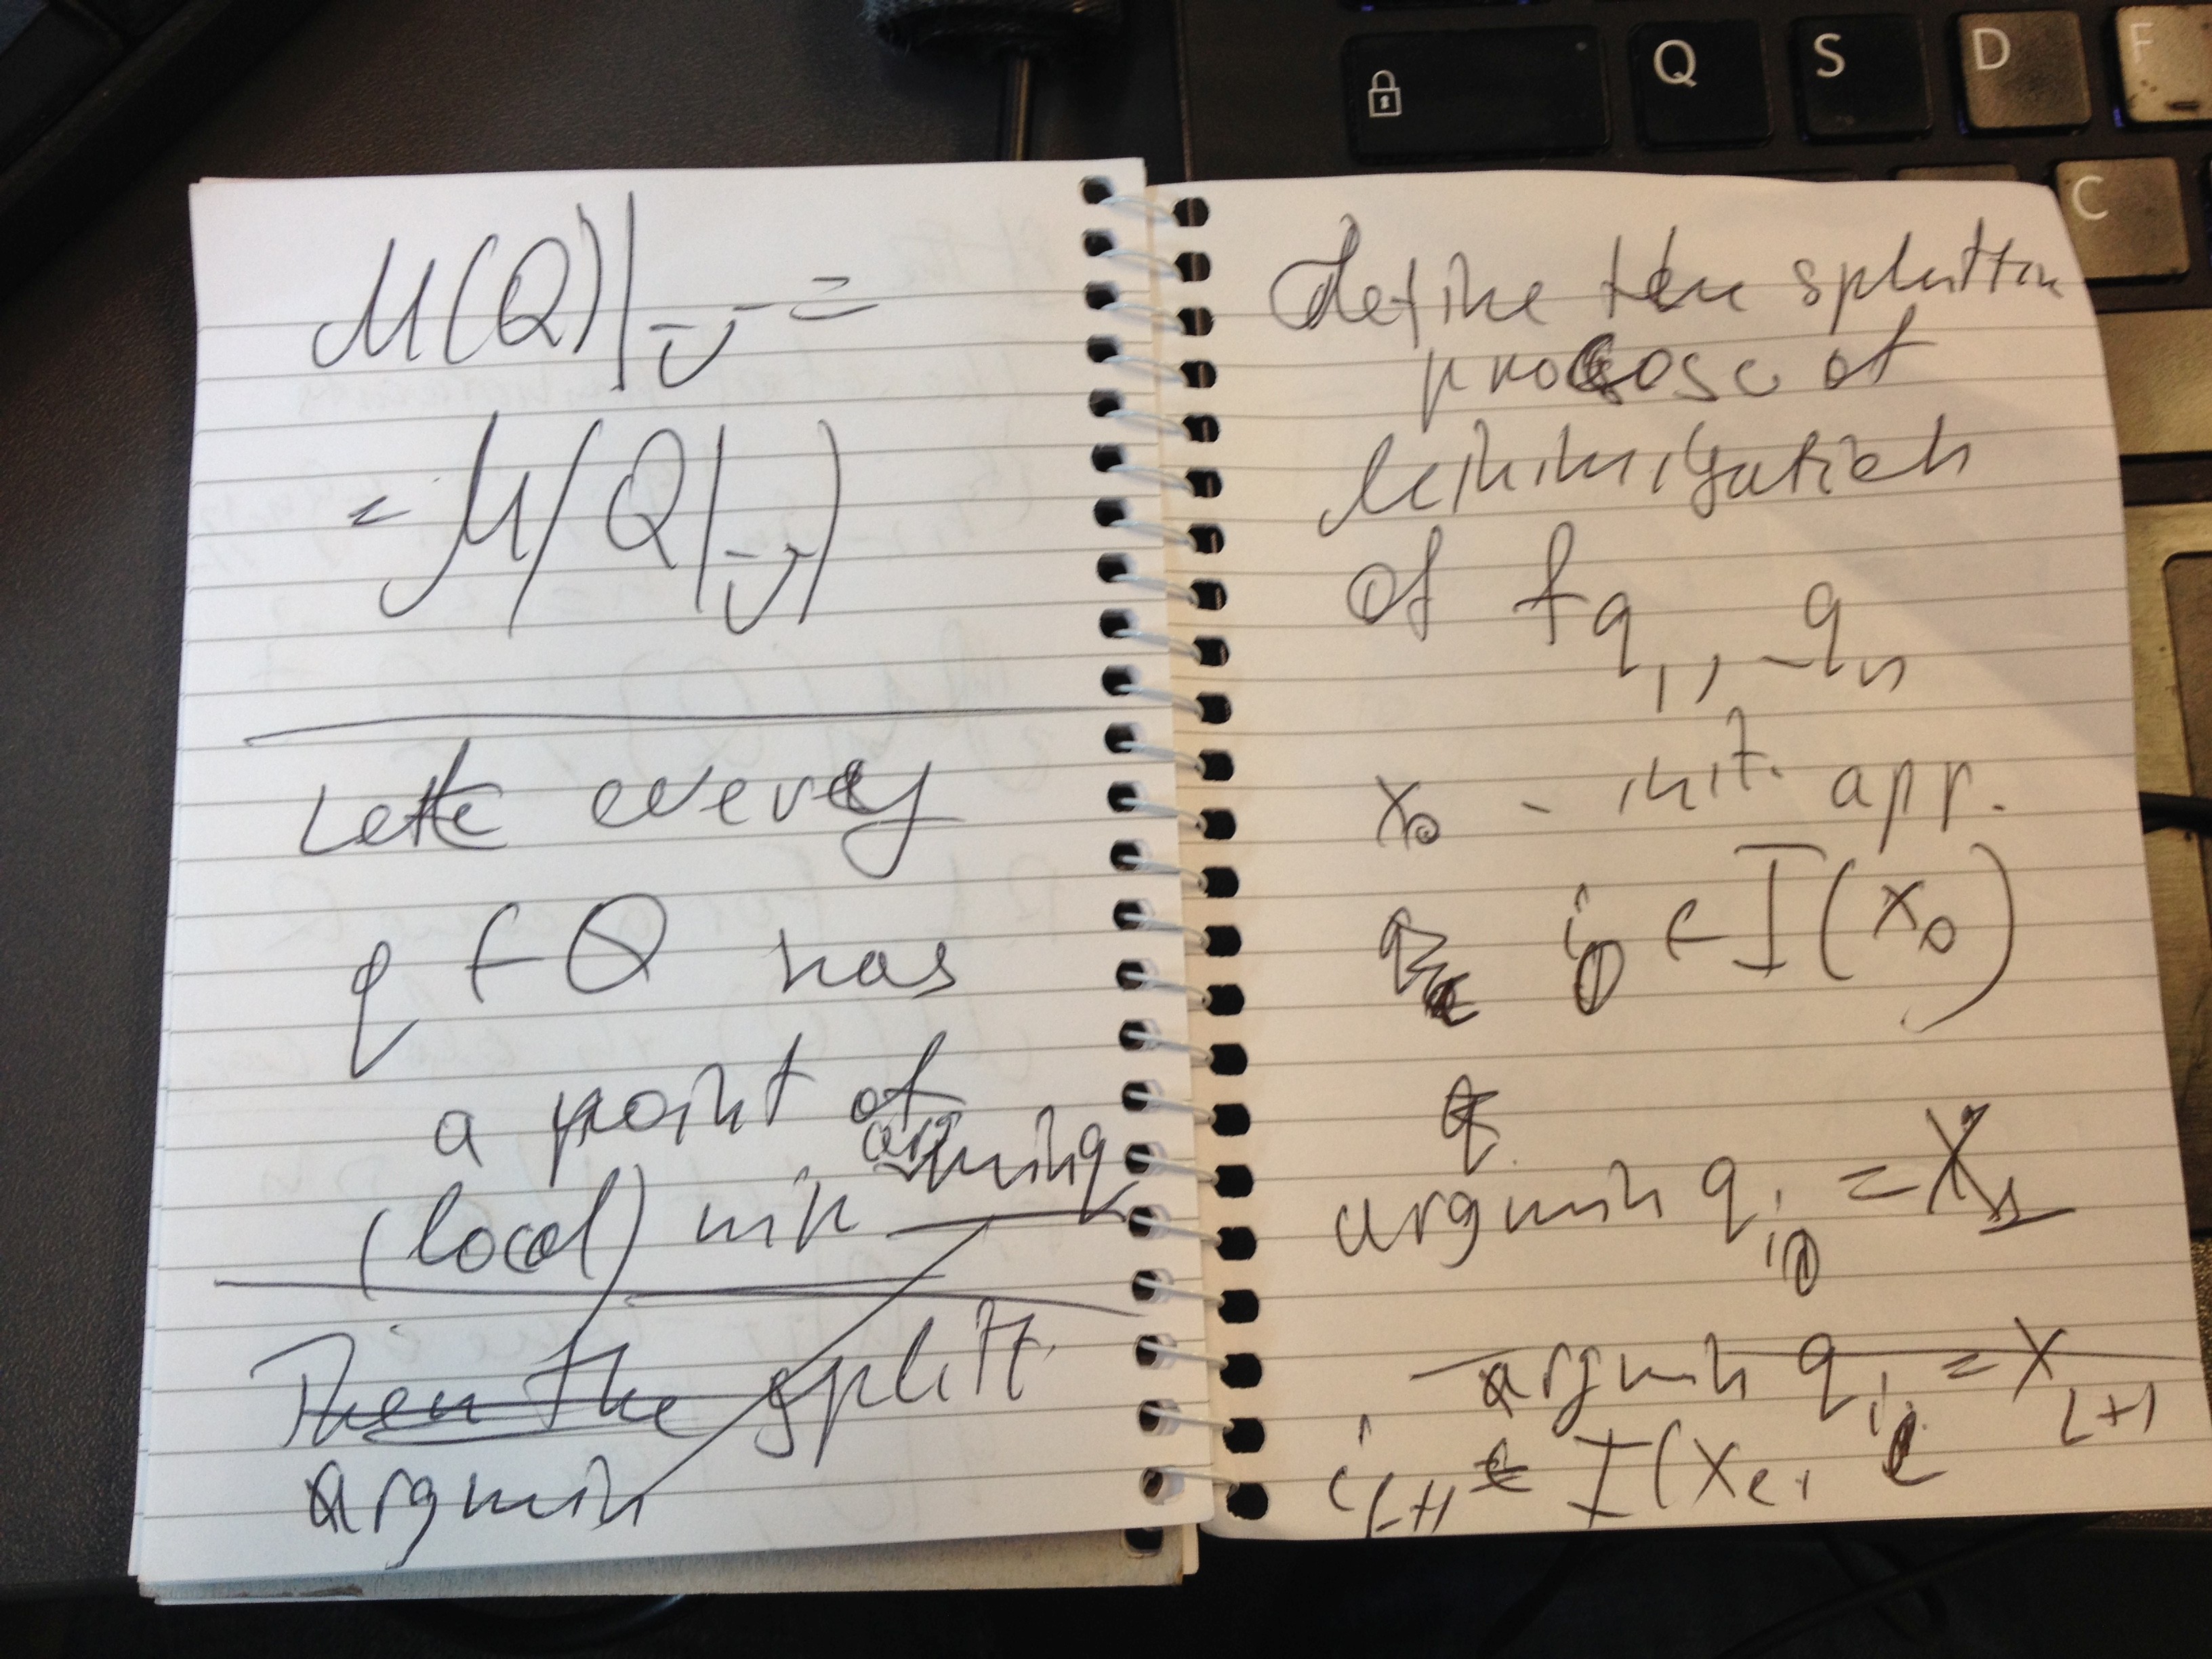 M(Q)|_U =
= M(Q|_U)
Let every
q ∈ Q has
a point of
(local) min argmin q
Then the split.
argmin
define the splittin
process of
minimization
of f q1, - qn
x0 - init. app.
i0 ∈ I(x0)
argmin q i0 = x1
argmin q il = x l+1
i l+1 ∈ I(xl+1
Q S D F
C